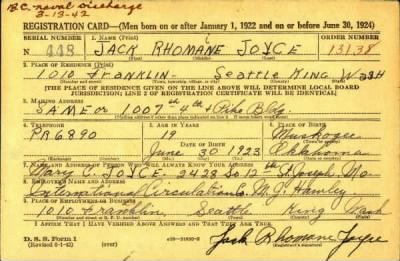 B.C. Naval Discharge
3-13-42
REGISTRATION CARD—(Men born on or after January 1, 1922 and on or before June 30, 1924)
SERIAL NUMBER 1. NAME (Print) ORDER NUMBER
N 448 JACK RHOMANE JOYCE 13138
(First) (Middle) (Last)
2. PLACE OF RESIDENCE (Print)
1010 Franklin Seattle King Wash
(Number and street) (Town, township, village, or city) (County) (State)
[THE PLACE OF RESIDENCE GIVEN ON THE LINE ABOVE WILL DETERMINE LOCAL BOARD
JURISDICTION; LINE 2 OF REGISTRATION CERTIFICATE WILL BE IDENTICAL]
3. MAILING ADDRESS
SAME or 1007 4th & Pike Bldg.
4. TELEPHONE 5. AGE IN YEARS 6. PLACE OF BIRTH
PR 6890 19 Muskogee
DATE OF BIRTH
June 30 1923 Oklahoma
7. NAME AND ADDRESS OF PERSON WHO WILL ALWAYS KNOW YOUR ADDRESS
Mary C. JOYCE. 2428 So 12th St Joseph Mo
8. EMPLOYER'S NAME AND ADDRESS
International Circulation Co M.J. Hawley
9. PLACE OF EMPLOYMENT OR BUSINESS
1010 Franklin, Seattle King Wash
(Number and street) (Town) (County) (State)
I AFFIRM THAT I HAVE VERIFIED ABOVE ANSWERS AND THAT THEY ARE TRUE.
D. S. S. Form 1
(Revised 6-1-42)
Jack Rhomane Joyce
(Registrant's signature)